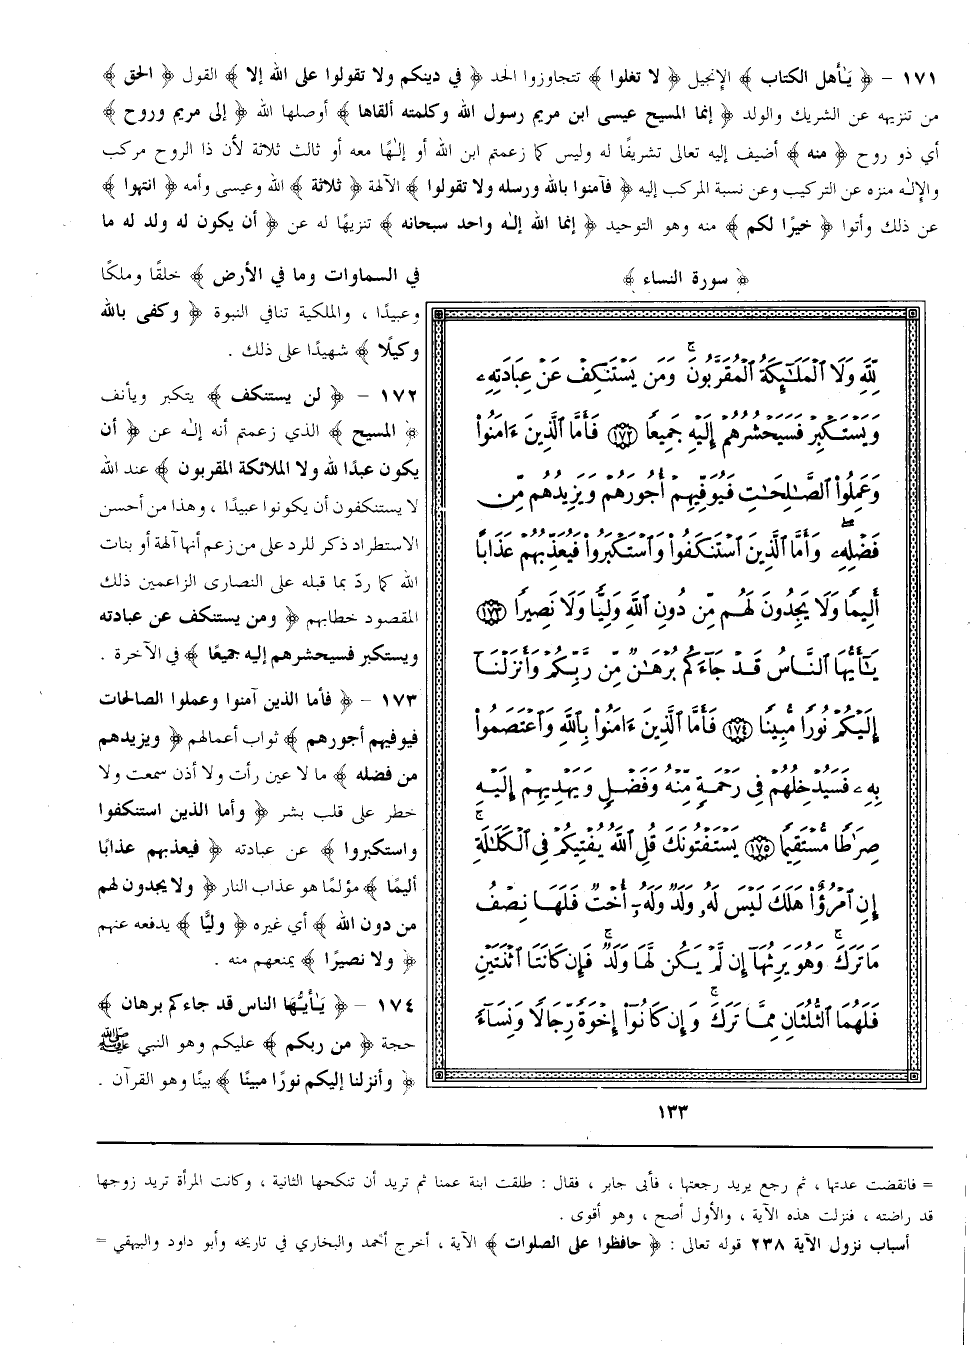 ١٧١ – ﴿ يـٰأهل الكتاب ﴾ الإنجيل ﴿ لا تغلوا ﴾ تتجاوزوا الحد ﴿ في دينكم ولا تقولوا على الله إلا ﴾ القول ﴿ الحق ﴾
من تنزيهه عن الشريك والولد ﴿ إنما المسيح عيسى ابن مريم رسول الله وكلمته ألقاها ﴾ أوصلها الله ﴿ إلى مريم وروح ﴾
أي ذو روح ﴿ منه ﴾ أضيف إليه تعالى تشريفًا له وليس كما زعمتم ابن الله أو إلـٰهًا معه أو ثالث ثلاثة لأن ذا الروح مركب
والإلـٰه منزه عن التركيب وعن نسبة المركب إليه ﴿ فآمنوا بالله ورسله ولا تقولوا ﴾ الآلهة ﴿ ثلاثة ﴾ الله وعيسى وأمه ﴿ انتهوا ﴾
عن ذلك وأتوا ﴿ خيرًا لكم ﴾ منه وهو التوحيد ﴿ إنما الله إلـٰه واحد سبحانه ﴾ تنزيهًا له عن ﴿ أن يكون له ولد له ما
في السماوات وما في الأرض ﴾ خلقًا وملكًا
وعبيدًا ، والملكية تنافي النبوة ﴿ وكفى بالله
وكيلًا ﴾ شهيدًا على ذلك .
١٧٢ – ﴿ لن يستنكف ﴾ يتكبر ويأنف
﴿ المسيح ﴾ الذي زعمتم أنه إلـٰه عن ﴿ أن
يكون عبدًا لله ولا الملائكة المقربون ﴾ عند الله
لا يستنكفون أن يكونوا عبيدًا ، وهذا من أحسن
الاستطراد ذكر للرد على من زعم أنها آلهة أو بنات
الله كما ردّ بما قبله على النصارى الزاعمين ذلك
المقصود خطابهم ﴿ ومن يستنكف عن عبادته
ويستكبر فسيحشرهم إليه جميعًا ﴾ في الآخرة .
١٧٣ – ﴿ فأما الذين آمنوا وعملوا الصالحات
فيوفيهم أجورهم ﴾ ثواب أعمالهم ﴿ ويزيدهم
من فضله ﴾ ما لا عين رأت ولا أذن سمعت ولا
خطر على قلب بشر ﴿ وأما الذين استنكفوا
واستكبروا ﴾ عن عبادته ﴿ فيعذبهم عذابًا
أليمًا ﴾ مؤلمًا هو عذاب النار ﴿ ولا يجدون لهم
من دون الله ﴾ أي غيره ﴿ وليًّا ﴾ يدفعه عنهم
﴿ ولا نصيرًا ﴾ يمنعهم منه .
١٧٤ – ﴿ يـٰأيُّها الناس قد جاءكم برهان ﴾
حجة ﴿ من ربكم ﴾ عليكم وهو النبي ﷺ
﴿ وأنزلنا إليكم نورًا مبينًا ﴾ بينًا وهو القرآن .
﴿ سورة النساء ﴾
لِّلَّهِ وَلَا ٱلْمَلَـٰٓئِكَةُ ٱلْمُقَرَّبُونَ ۚ وَمَن يَسْتَنكِفْ عَنْ عِبَادَتِهِۦ
وَيَسْتَكْبِرْ فَسَيَحْشُرُهُمْ إِلَيْهِ جَمِيعًا ﴿١٧٢﴾ فَأَمَّا ٱلَّذِينَ ءَامَنُوا۟
وَعَمِلُوا۟ ٱلصَّـٰلِحَـٰتِ فَيُوَفِّيهِمْ أُجُورَهُمْ وَيَزِيدُهُم مِّن
فَضْلِهِۦ ۖ وَأَمَّا ٱلَّذِينَ ٱسْتَنكَفُوا۟ وَٱسْتَكْبَرُوا۟ فَيُعَذِّبُهُمْ عَذَابًا
أَلِيمًا وَلَا يَجِدُونَ لَهُم مِّن دُونِ ٱللَّهِ وَلِيًّا وَلَا نَصِيرًا ﴿١٧٣﴾
يَـٰٓأَيُّهَا ٱلنَّاسُ قَدْ جَآءَكُم بُرْهَـٰنٌ مِّن رَّبِّكُمْ وَأَنزَلْنَآ
إِلَيْكُمْ نُورًا مُّبِينًا ﴿١٧٤﴾ فَأَمَّا ٱلَّذِينَ ءَامَنُوا۟ بِٱللَّهِ وَٱعْتَصَمُوا۟
بِهِۦ فَسَيُدْخِلُهُمْ فِى رَحْمَةٍ مِّنْهُ وَفَضْلٍ وَيَهْدِيهِمْ إِلَيْهِ
صِرَٰطًا مُّسْتَقِيمًا ﴿١٧٥﴾ يَسْتَفْتُونَكَ قُلِ ٱللَّهُ يُفْتِيكُمْ فِى ٱلْكَلَـٰلَةِ ۚ
إِنِ ٱمْرُؤٌا۟ هَلَكَ لَيْسَ لَهُۥ وَلَدٌ وَلَهُۥٓ أُخْتٌ فَلَهَا نِصْفُ
مَا تَرَكَ ۚ وَهُوَ يَرِثُهَآ إِن لَّمْ يَكُن لَّهَا وَلَدٌ ۚ فَإِن كَانَتَا ٱثْنَتَيْنِ
فَلَهُمَا ٱلثُّلُثَانِ مِمَّا تَرَكَ ۚ وَإِن كَانُوٓا۟ إِخْوَةً رِّجَالًا وَنِسَآءً
١٣٣
= فانقضت عدتها ، ثم رجع يريد رجعتها ، فأبى جابر ، فقال : طلقت ابنة عمنا ثم تريد أن تنكحها الثانية ، وكانت المرأة تريد زوجها
قد راضته ، فنزلت هذه الآية ، والأول أصح ، وهو أقوى .
أسباب نزول الآية ٢٣٨ قوله تعالى : ﴿ حافظوا على الصلوات ﴾ الآية ، أخرج أحمد والبخاري في تاريخه وأبو داود والبيهقي =